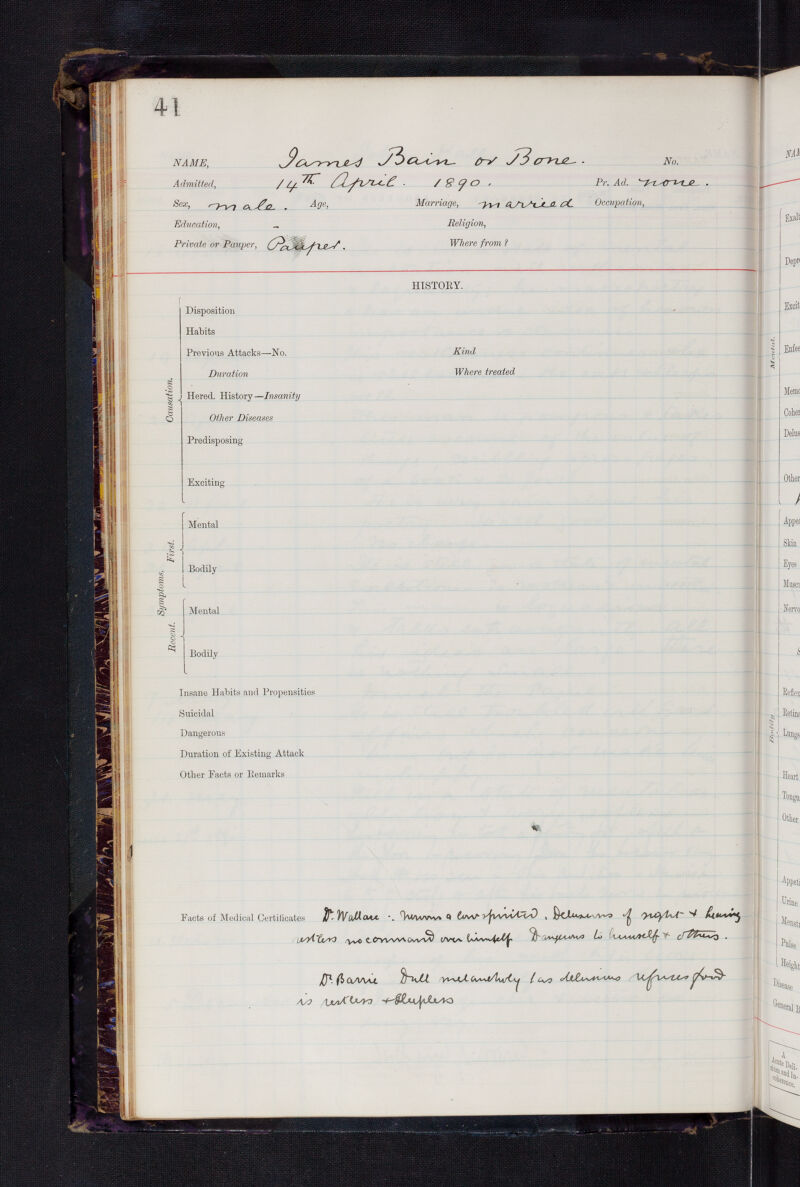 41
NAME, James Bain or Bone. No.
Admitted, 14th April. 1890. Pr. Ad. none.
Sex, male. Age, Marriage, married Occupation,
Education, - Religion,
Private or Pauper, Pauper. Where from?
HISTORY.
Disposition
Habits
Previous Attacks—No. Kind
Duration Where treated
Causation.
Hered. History—Insanity
Other Diseases
Predisposing
Exciting
Symptoms.
First.
Mental
Bodily
Recent.
Mental
Bodily
Insane Habits and Propensities
Suicidal
Dangerous
Duration of Existing Attack
Other Facts or Remarks
Facts of Medical Certificates Dr. Wallace :. Nervous & low spirited, Delusions of sight & hearing
restless no command over himself Dangerous to himself & others.
Dr Barrie Dull melancholy has delusions refuses food
is restless & sleepless
NAM
Mental.
Exalt
Depr
Excit
Enfee
Memo
Coher
Delus
Other
Bodily
Appe
Skin
Eyes
Musc
Nervo
Reflex
Retin
Lungs
Heart
Tongu
Other
Appeti
Urine
Menst
Pulse
Height
Disease
General B
A
Acute Deli-
rium and In-
coherence.